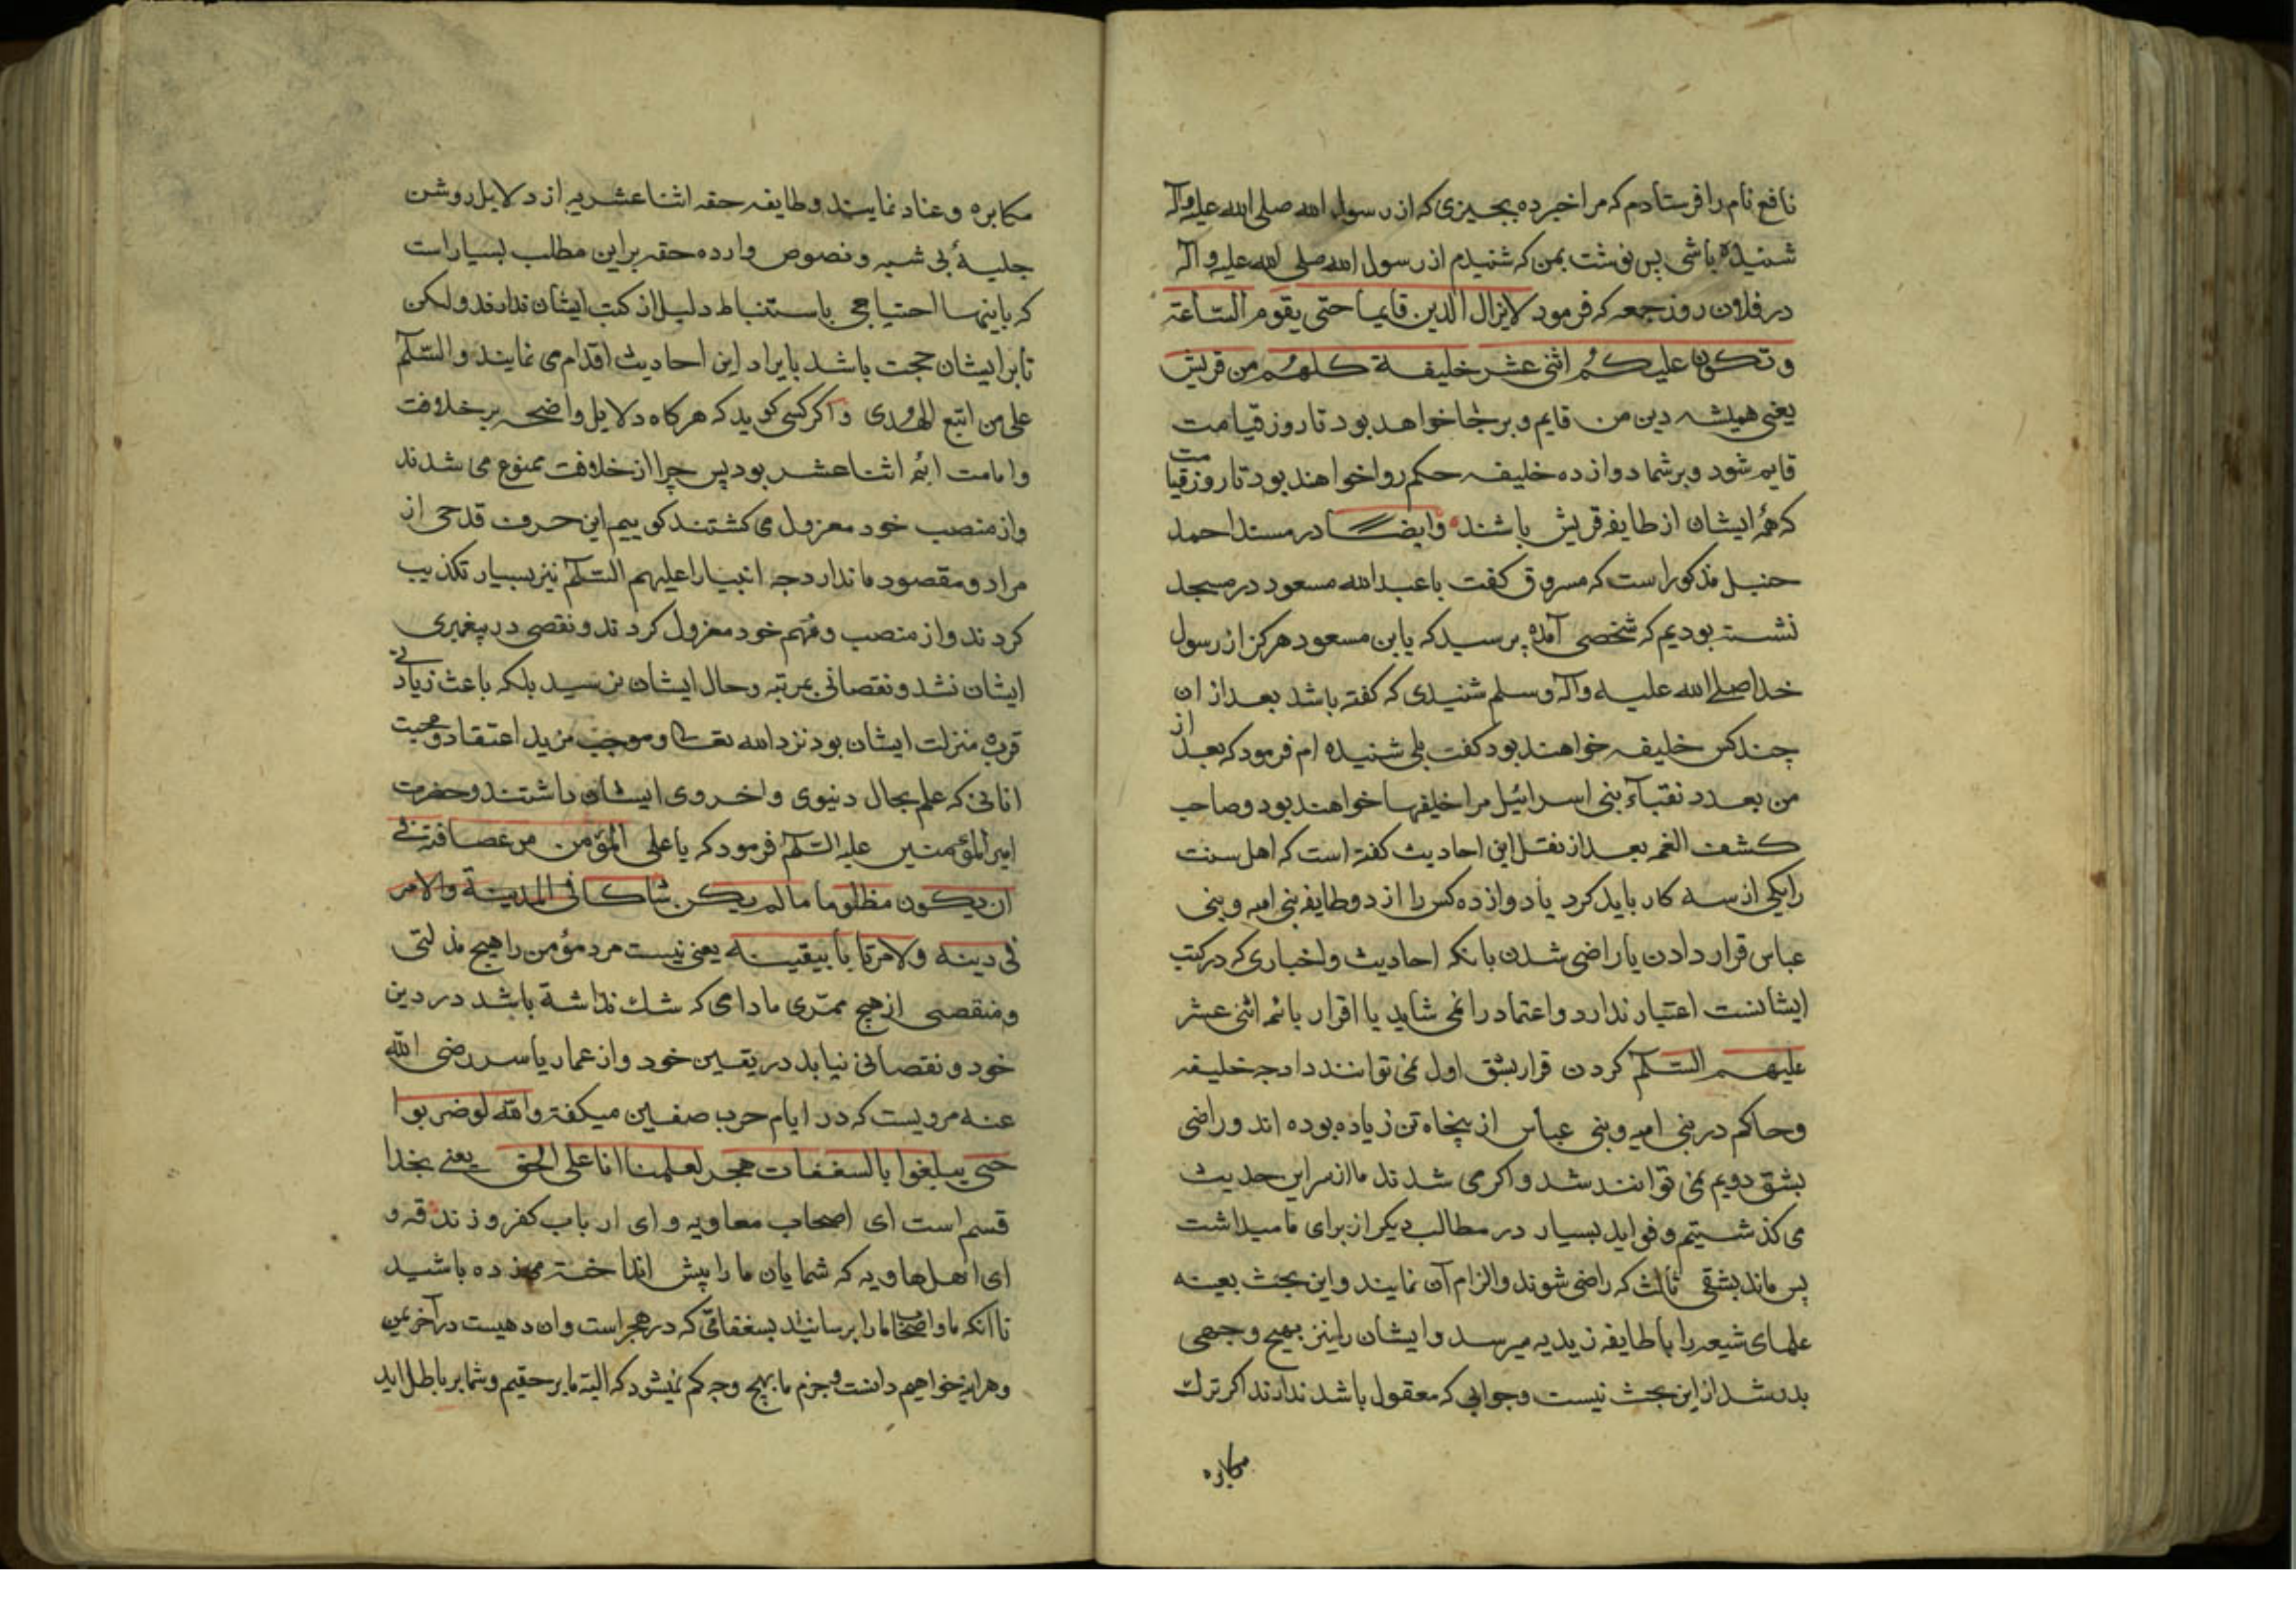 نافع نام را فرستادم که مرا خبر ده بچیزی که از رسول الله صلی الله علیه وآله
شنیده باشی پس نوشت بمن که شنیدم از رسول الله صلی الله علیه وآله
در فلان روز جمعه که فرمود لایزال الدین قایما حتی یقوم الساعة
و تکون علیکم اثنی عشر خلیفة کلهم من قریش
یعنی همیشه دین من قایم و برجا خواهد بود تا روز قیامت
قایم شود و بر شما دوازده خلیفه حکم روا خواهند بود تا روز قیامت
که همهٔ ایشان از طایفه قریش باشند وایضا در مسند احمد
حنبل مذکور است که مسروق کفت با عبدالله مسعود در مسجد
نشسته بودیم که شخصی آمده پرسید که یابن مسعود هرکز از رسول
خدا صلی الله علیه وآله وسلم شنیدی که کفته باشد بعد از ان
چند کس خلیفه خواهند بود کفت بلی شنیده ام فرمود که بعد از
من بعدد نقبآء بنی اسرائیل مرا خلیفها خواهند بود و صاحب
کشف الغمه بعد از نقل این احادیث کفته است که اهل سنت
را یکی از سه کار باید کرد یا دوازده کس را از دو طایفه بنی امیه و بنی
عباس قرار دادن یا راضی شدن بانکه احادیث و اخباری که در کتب
ایشانست اعتبار ندارد و اعتماد را نمی شاید یا اقرار بائمه اثنی عشر
علیهم السلام کردن قرار بشق اول نمی توانند داد چه خلیفه
و حاکم در بنی امیه و بنی عباس از پنجاه تن زیاده بوده اند و راضی
بشق دویم نمی توانند شد و اکر می شدند ما از سر این حدیث
می کذشتیم و فواید بسیار در مطالب دیکر از برای ما میداشت
پس ماند بشقی ثالث که راضی شوند و الزام آن نمایند و این بحث بعینه
علمای شیعه را با طایفه زیدیه میرسد و ایشان را نیز بهیچ وجهی
بدر شد از این بحث نیست و جوابی که معقول باشد ندارند اکر ترک
مکابره
مکابره و عناد نمایند و طایفه حقه اثنا عشریه از دلایل روشن
جلیهٔ بی شبه و نصوص وارده حقه بر این مطلب بسیار است
که باینها احتیاجی باستنباط دلیل از کتب ایشان ندارند و لکن
تا بر ایشان حجت باشد بایراد این احادیث اقدام می نمایند والسلام
علی من اتبع الهدی و اکر کسی کوید که هرکاه دلایل واضحه بر خلافت
و امامت ائمه اثنا عشر بود پس چرا از خلافت ممنوع می شدند
و از منصب خود معزول می کشتند کوییم این حرف قدحی از
مراد و مقصود ما ندارد چه انبیا را علیهم السلام نیز بسیار تکذیب
کردند و از منصب و مهم خود معزول کردند و نقصی در پیغمبری
ایشان نشد و نقصانی بمرتبه و حال ایشان نرسید بلکه باعث زیادتی
قرب و منزلت ایشان بود نزد الله تعالی و موجب مزید اعتقاد و محبت
انانی که علم بحال دنیوی و اخروی ایشان داشتند و حضرت
امیر المؤمنین علیه السلام فرمود که یا علی المؤمن من غضاضة فی
ان یکون مظلوما ما لم یکن شاکا فی المدینة والامر
فی دینه ولا مرتابا بیقینه یعنی نیست مرد مؤمن را هیچ مذلتی
و منقصی از هیچ ممری مادامی که شک نداشته باشد در دین
خود و نقصانی نیابد در یقین خود و از عمار یاسر رضی الله
عنه مرویست که در ایام حرب صفین میکفته والله لو ضربوا
حتی یبلغوا بالسعفات هجر لعلمنا انا علی الحق یعنی بخدا
قسم است ای اصحاب معاویه و ای ارباب کفر و زندقه و
ای اهل هاویه که شمایان ما را پیش انداخته میزده باشید
تا آنکه ما و اصحاب ما را برسانید بسعفاتی که در هجر است و ان دهیست در آخر یمن
و هراینه خواهیم دانست و جزم ما بهیچ وجه کم نمیشود که البته ما بر حقیم و شما بر باطل اید